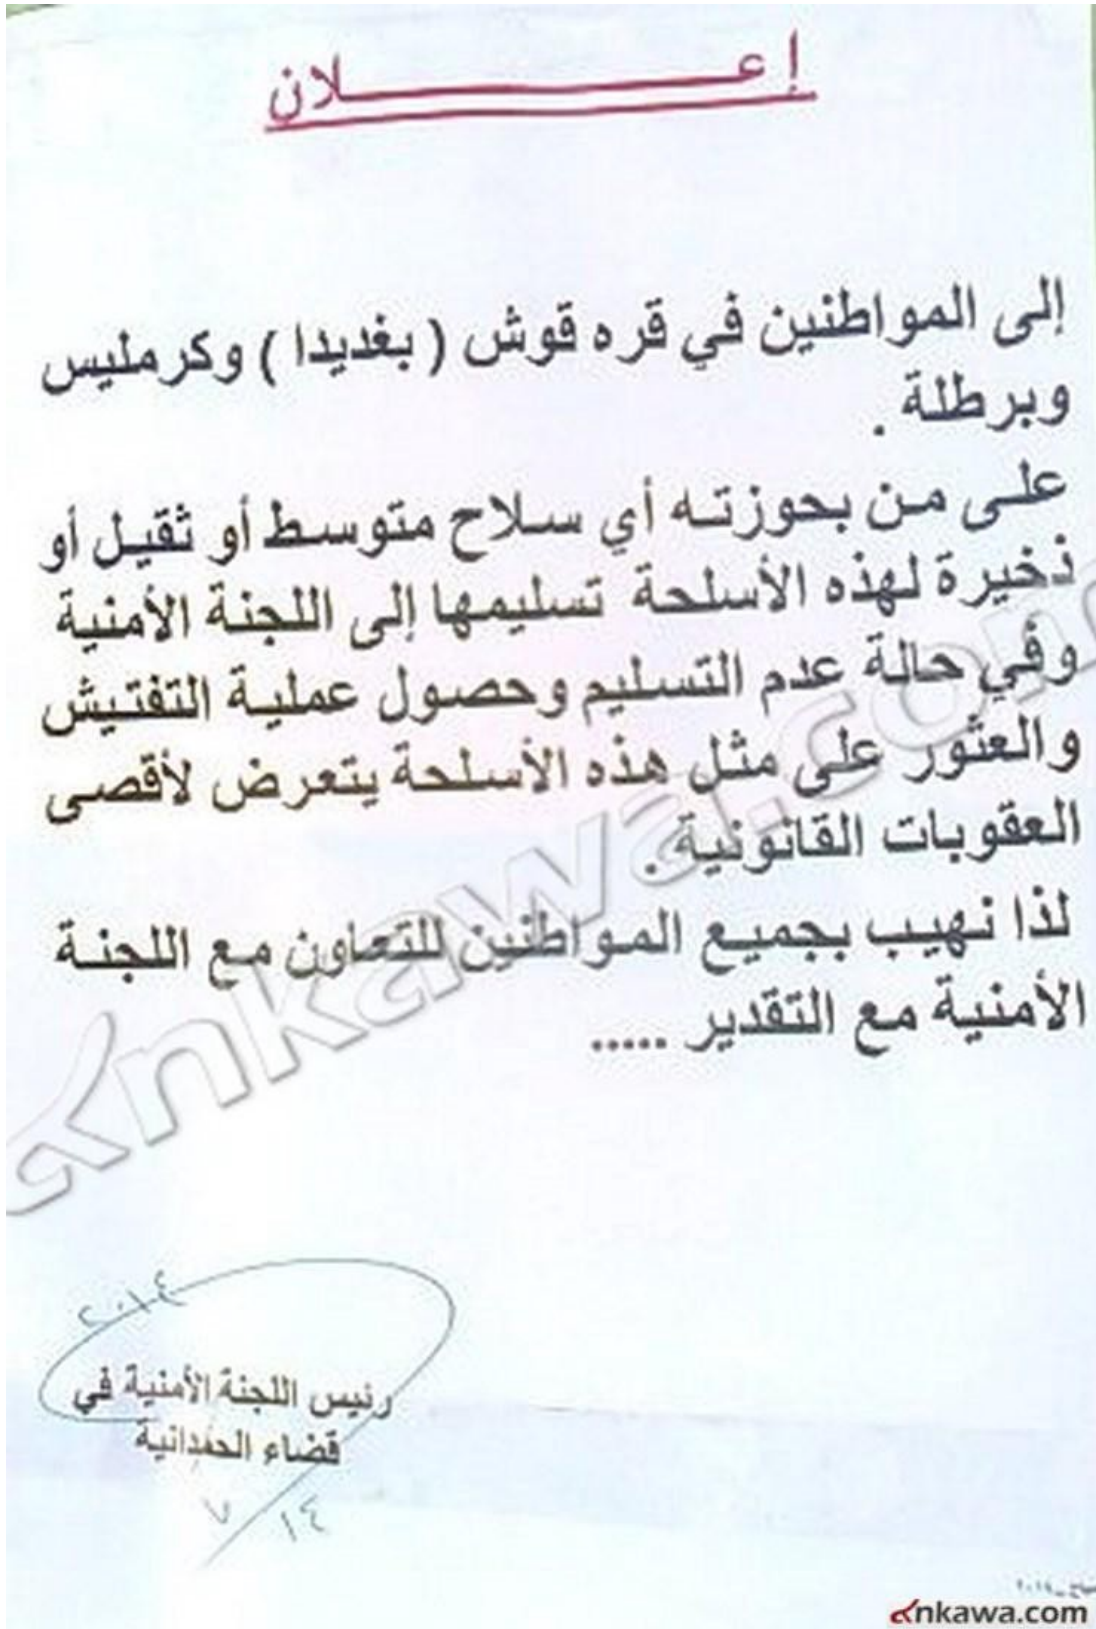 إعلان
إلى المواطنين في قره قوش ( بغديدا ) وكرمليس
وبرطلة .
على من بحوزته أي سلاح متوسط أو ثقيل أو
ذخيرة لهذه الأسلحة تسليمها إلى اللجنة الأمنية
وفي حالة عدم التسليم وحصول عملية التفتيش
والعثور على مثل هذه الأسلحة يتعرض لأقصى
العقوبات القانونية .
لذا نهيب بجميع المواطنين للتعاون مع اللجنة
الأمنية مع التقدير .....
رئيس اللجنة الأمنية في
قضاء الحمدانية
ankawa.com
ankawa.com